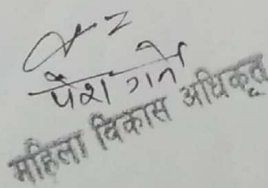 पेश गर्ने
महिला विकास अधिकृत